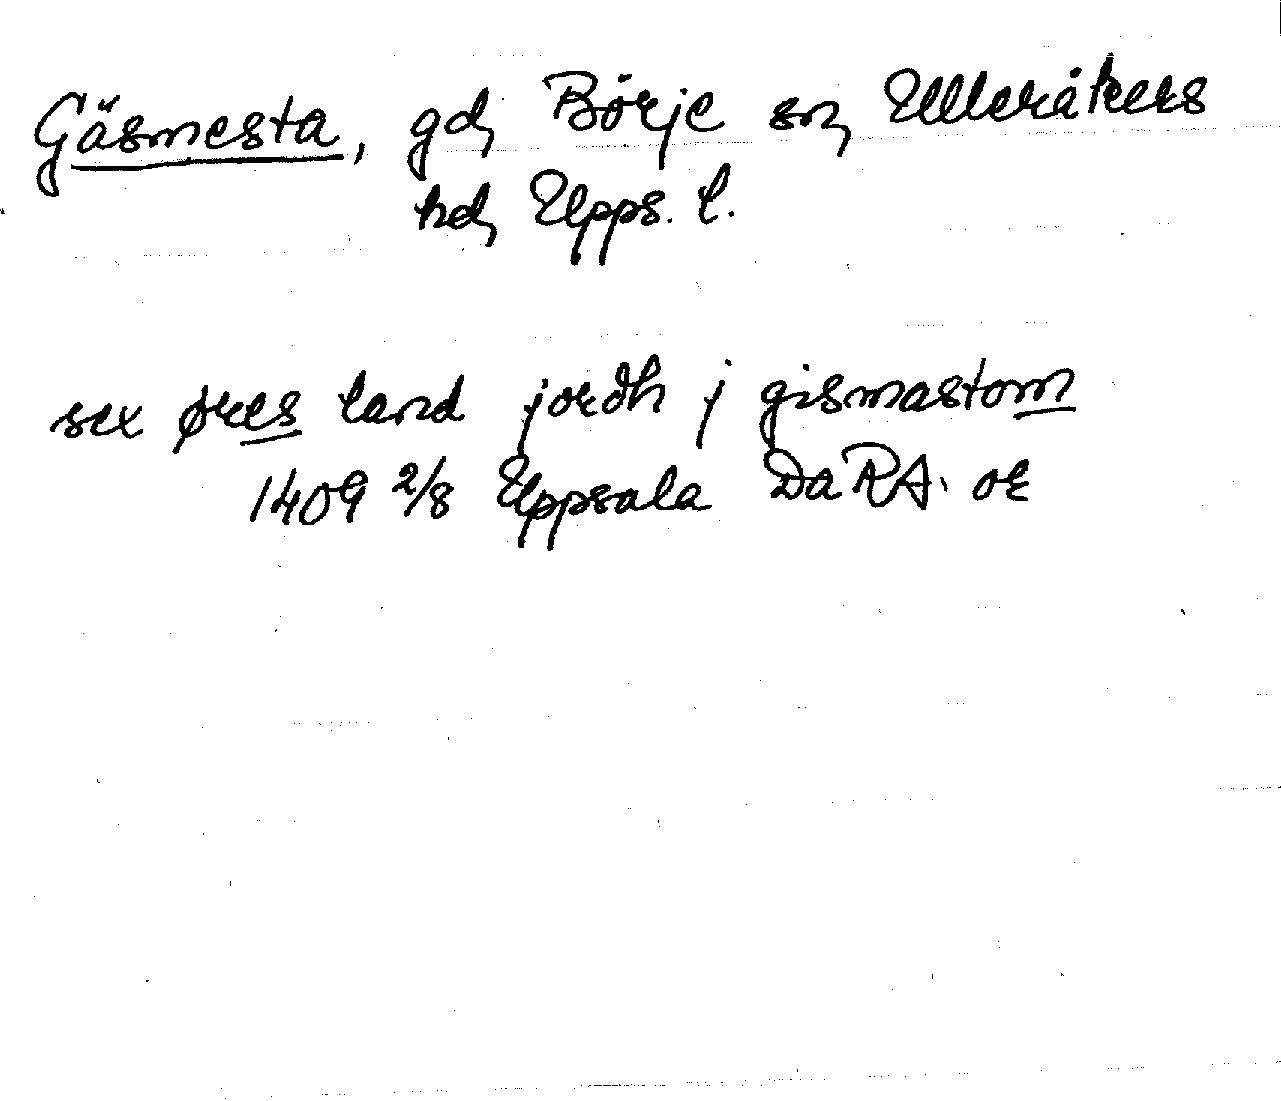 Gäsmesta, gd, Börje sn, Ulleråkers
hd, Upps. l.
sex øres land jordh j gismastom
1409 2/8 Uppsala Da RA. or